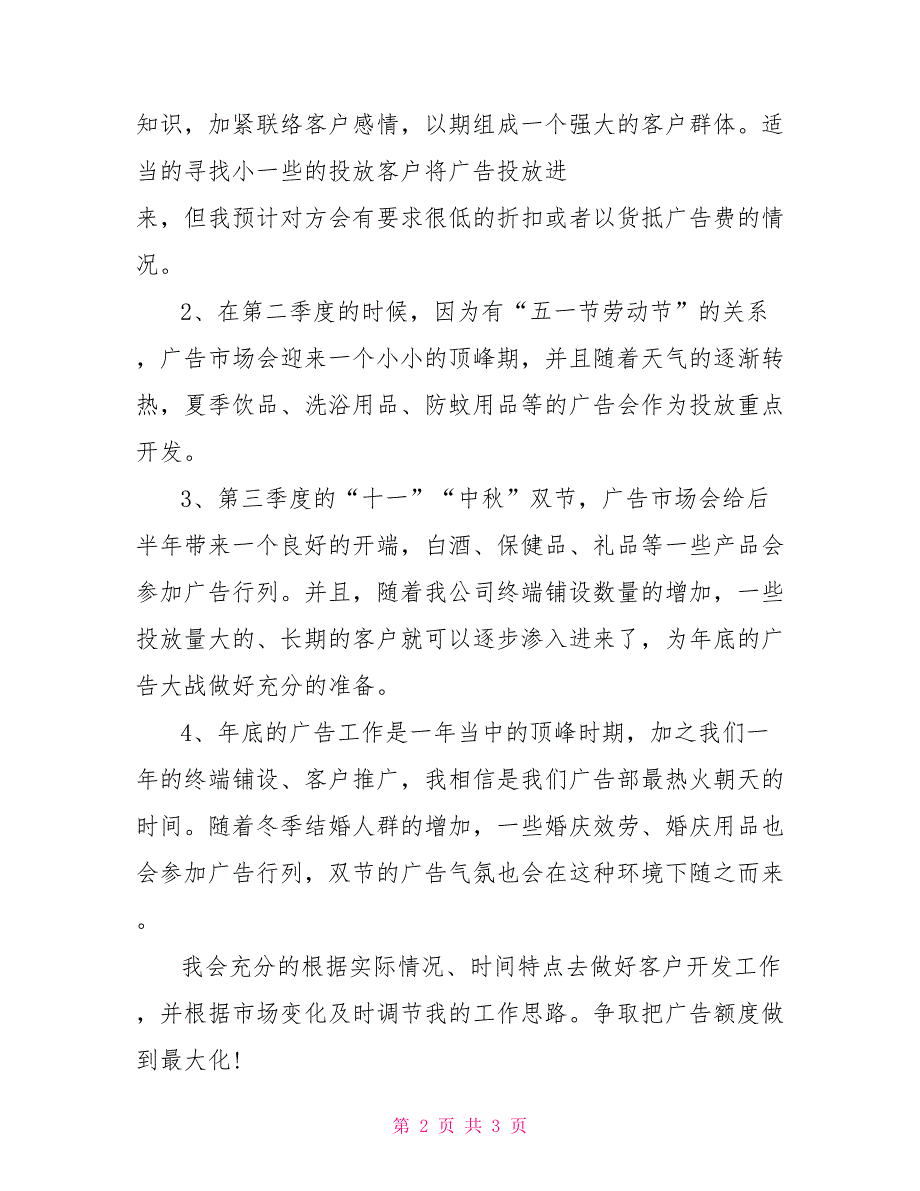 知识，加紧联络客户感情，以期组成一个强大的客户群体。适
当的寻找小一些的投放客户将广告投放进
来，但我预计对方会有要求很低的折扣或者以货抵广告费的情
况。
2、在第二季度的时候，因为有“五一节劳动节”的关系
，广告市场会迎来一个小小的顶峰期，并且随着天气的逐渐转
热，夏季饮品、洗浴用品、防蚊用品等的广告会作为投放重点
开发。
3、第三季度的“十一”“中秋”双节，广告市场会给后
半年带来一个良好的开端，白酒、保健品、礼品等一些产品会
参加广告行列。并且，随着我公司终端铺设数量的增加，一些
投放量大的、长期的客户就可以逐步渗入进来了，为年底的广
告大战做好充分的准备。
4、年底的广告工作是一年当中的顶峰时期，加之我们一
年的终端铺设、客户推广，我相信是我们广告部最热火朝天的
时间。随着冬季结婚人群的增加，一些婚庆效劳、婚庆用品也
会参加广告行列，双节的广告气氛也会在这种环境下随之而来
。
我会充分的根据实际情况、时间特点去做好客户开发工作
，并根据市场变化及时调节我的工作思路。争取把广告额度做
到最大化!
第 2 页 共 3 页